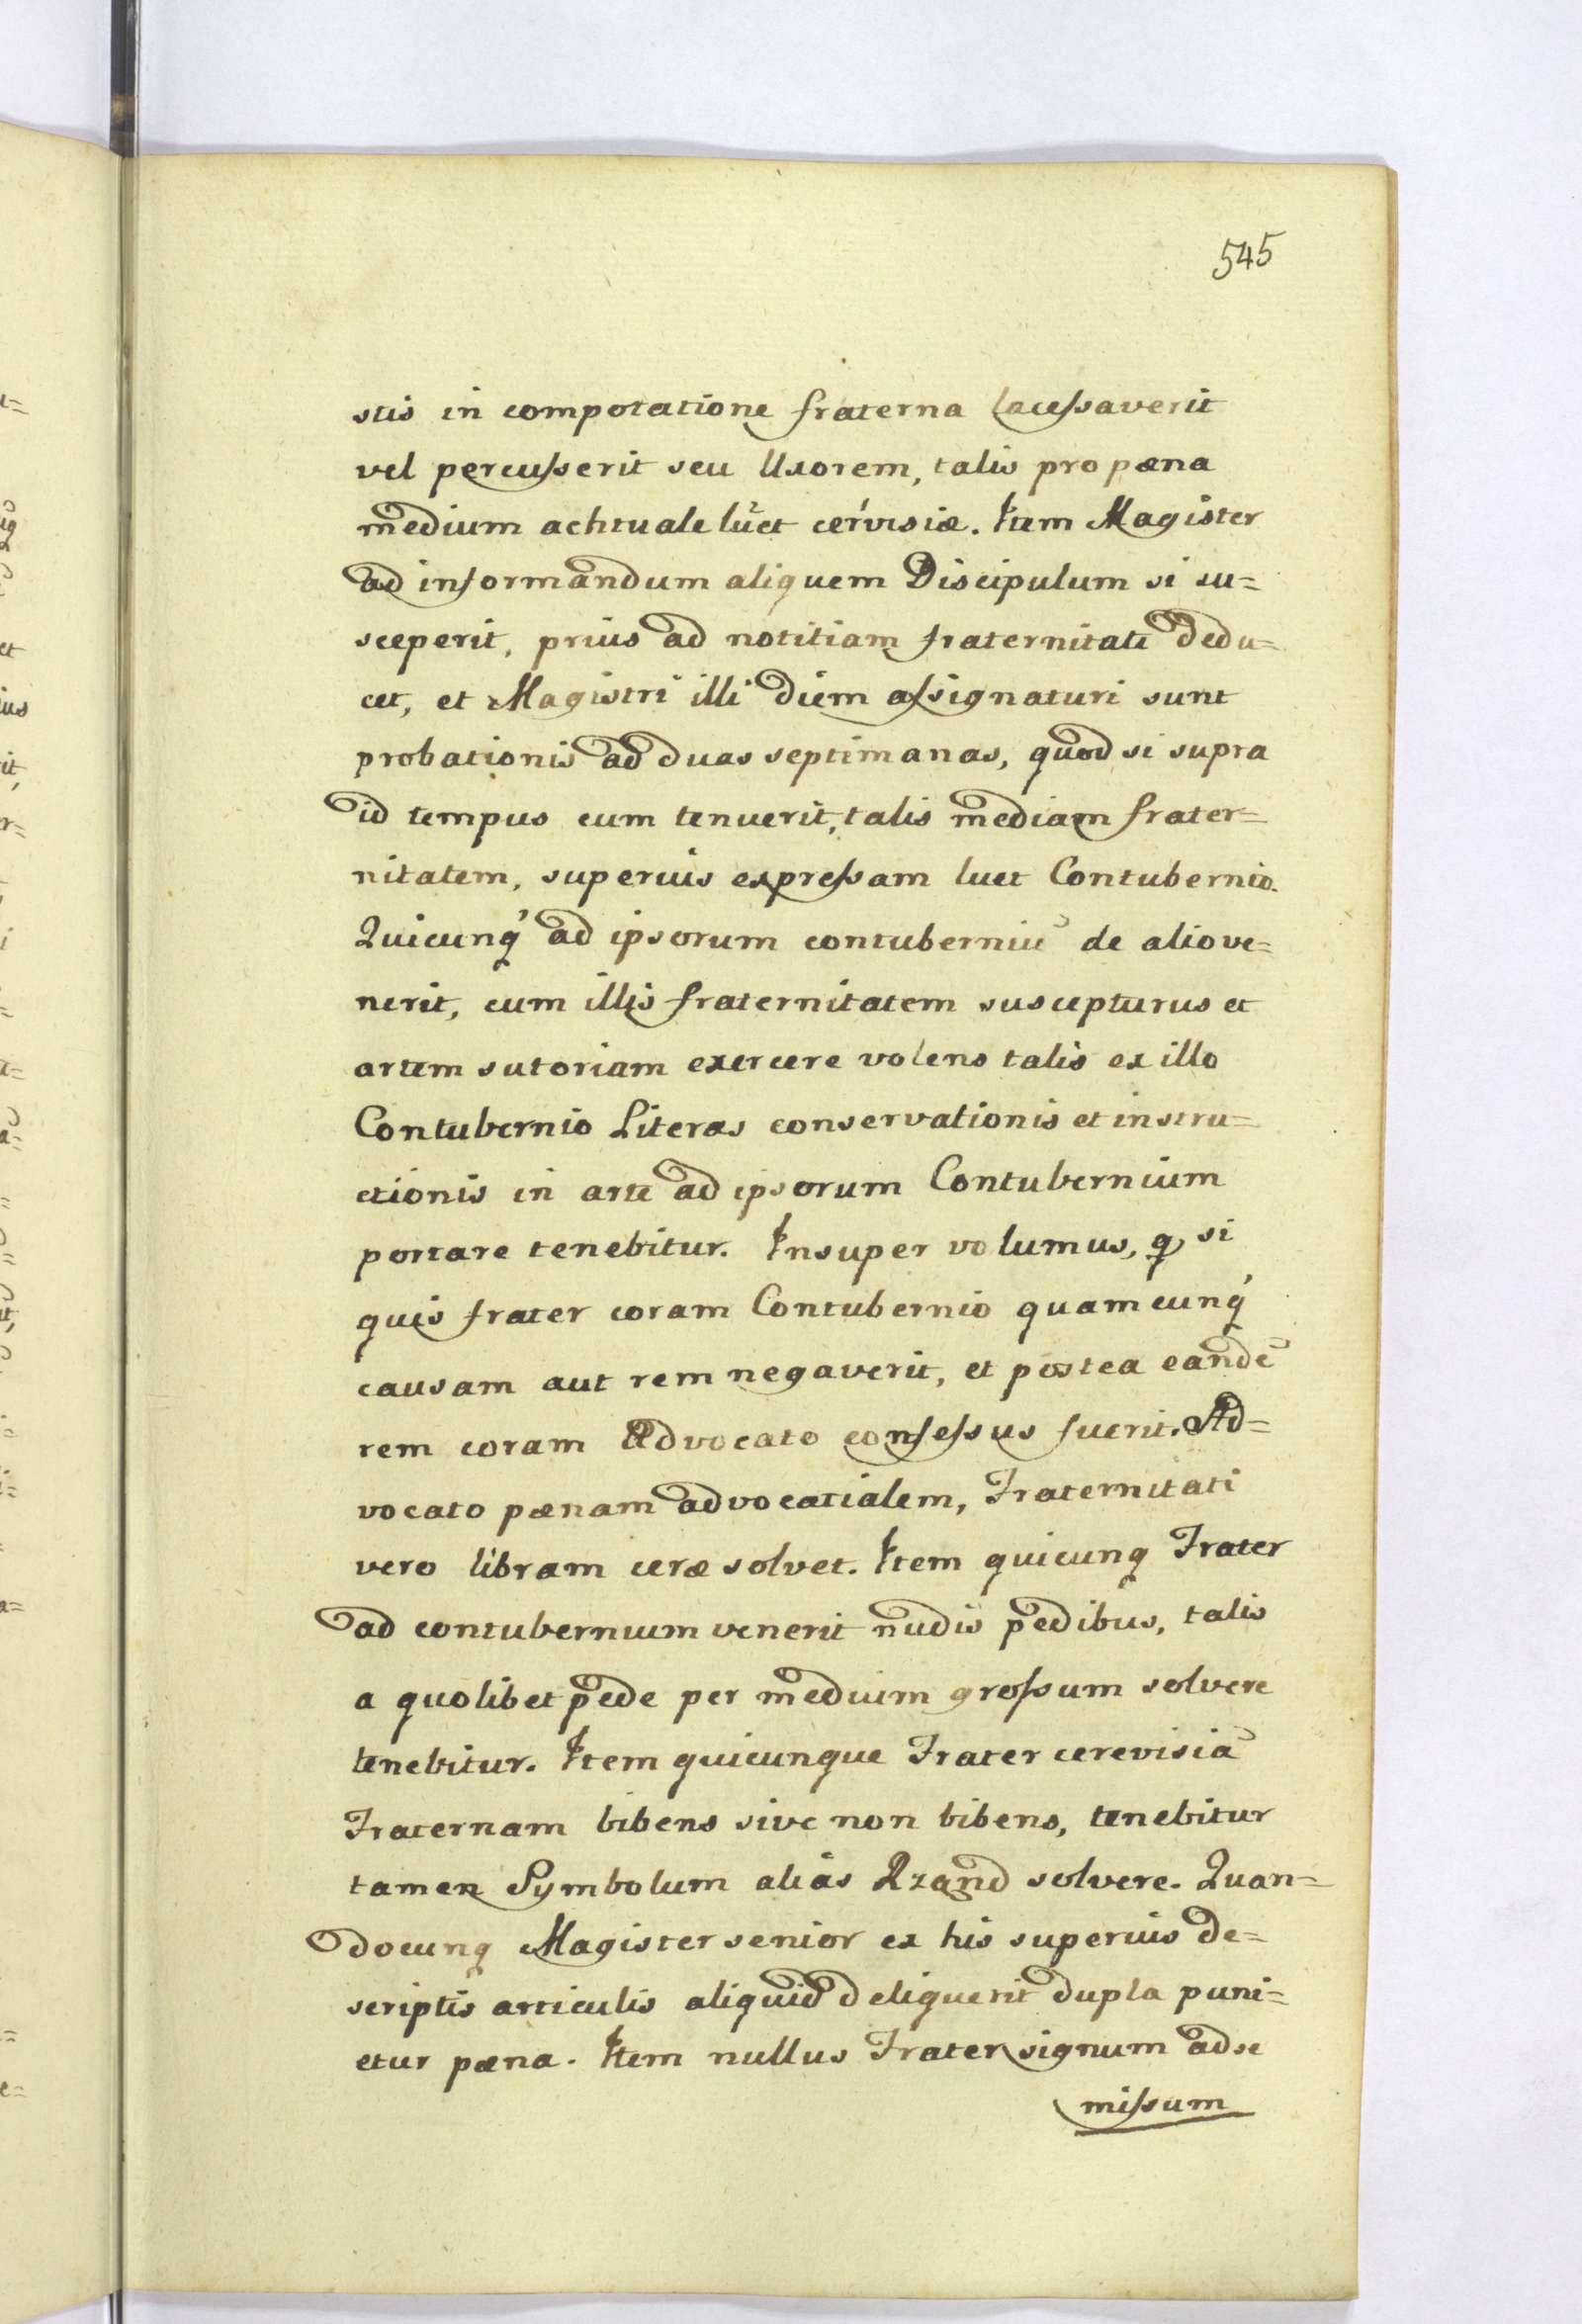 545
stis in compotatione fraterna lacessaverit
vel percusserit seu Uxorem, talis pro pæna
medium achtuale luet cervisiæ. Item Magister
ad informandum aliquem Discipulum si su=
sceperit, prius ad notitiam fraternitati dedu=
cet, et Magistri illi diem assignaturi sunt
probationis ad duas septimanas, quod si supra
id tempus eum tenuerit, talis mediam frater=
nitatem, superius expressam luet Contubernio.
Quicunq́ ad ipsorum contuberniũ de alio ve=
nerit, cum illis fraternitatem suscepturus et
artem sutoriam exercere volens talis ex illo
Contubernio Literas conservationis et instru=
ctionis in arte ad ipsorum Contubernium
portare tenebitur. Insuper volumus, q, si
quis frater coram Contubernio quamcunq́
causam aut rem negaverit, et postea eandẽ
rem coram Advocato confessus fuerit. Ad=
vocato pænam advocatialem, Fraternitati
vero libram ceræ solvet. Item quicunq Frater
ad contubernium venerit nudis pedibus, talis
a quolibet pede per medium grossum solvere
tenebitur. Item quicunque Frater cerevisiã
Fraternam bibens sive non bibens, tenebitur
tamen Symbolum aliàs Rzand solvere. Quan=
docunq Magister senior ex his superius de=
scriptis articulis aliquid deliquerit dupla puni=
etur pæna. Item nullus Frater signum ad se
missum